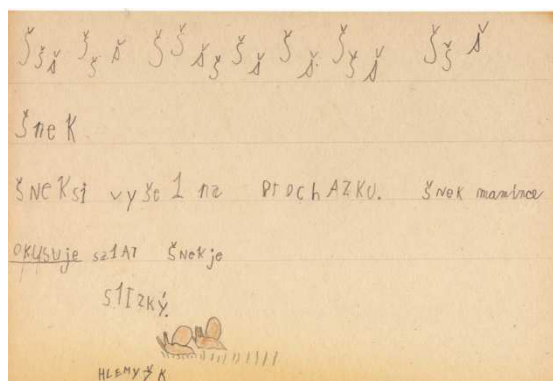 Š š š š š š Š Š š š Š š Š š Š š š Š š š
šneK
šNeKsi vyše1 na prochAZKU. šNeK mamince
OKUSUje sa1AT šNeK je
S1IZKÝ.
HLEMÝŽĎ K